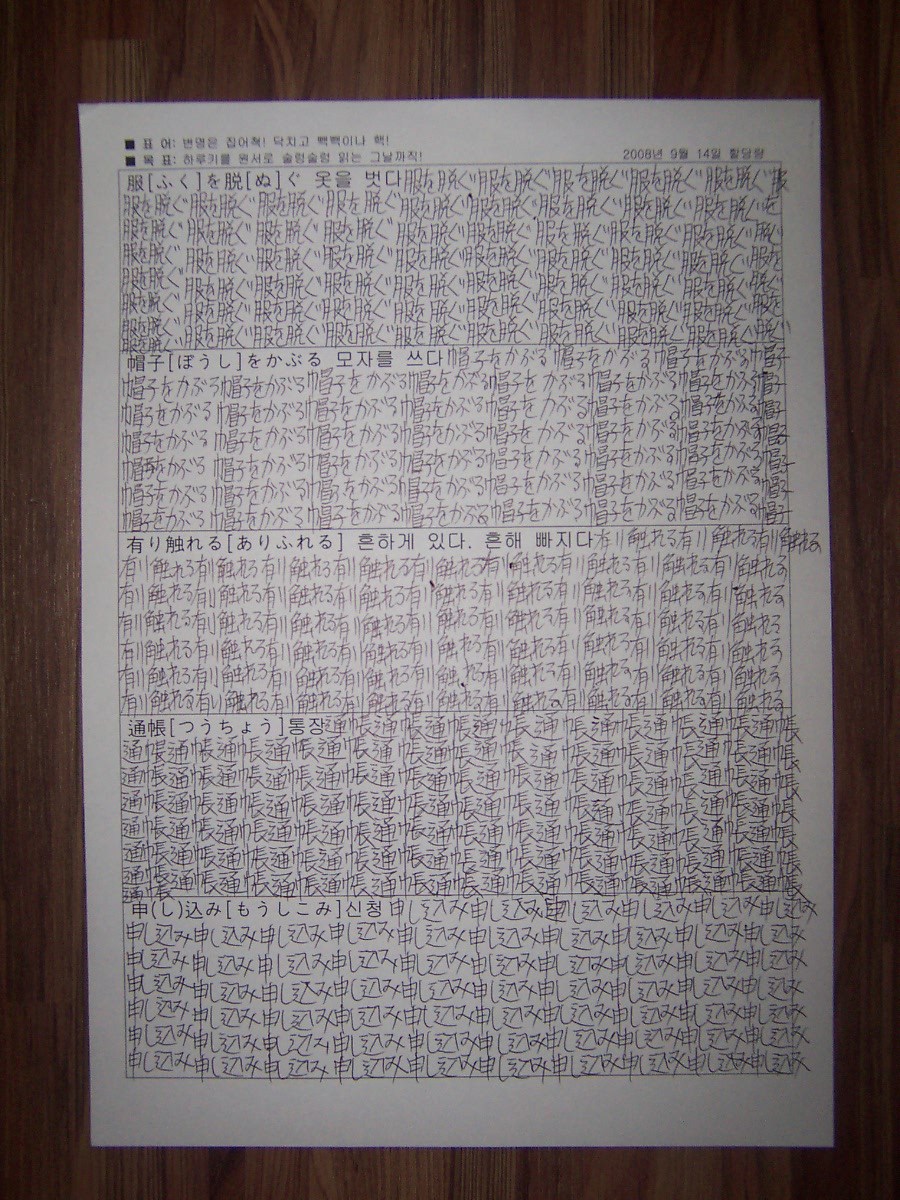 ■ 표 어: 변명은 집어쳐! 닥치고 빽빽이나 핵!
■ 목 표: 하루키를 원서로 술렁술렁 읽는 그날까지! 2008년 9월 14일 할당량
服[ふく]を脱[ぬ]ぐ 옷을 벗다 服を脱ぐ 服を脱ぐ 服を脱ぐ 服を脱ぐ 服を脱ぐ 服
服を脱ぐ 服を脱ぐ 服を脱ぐ 服を脱ぐ 服を脱ぐ 服を脱ぐ 服を脱ぐ 服を脱ぐ 服を脱ぐ
服を脱ぐ 服を脱ぐ 服を脱ぐ 服を脱ぐ 服を脱ぐ 服を脱ぐ 服を脱ぐ 服を脱ぐ 服を脱ぐ
服を脱ぐ 服を脱ぐ 服を脱ぐ 服を脱ぐ 服を脱ぐ 服を脱ぐ 服を脱ぐ 服を脱ぐ 服を脱ぐ
服を脱ぐ 服を脱ぐ 服を脱ぐ 服を脱ぐ 服を脱ぐ 服を脱ぐ 服を脱ぐ 服を脱ぐ 服を脱ぐ
服を脱ぐ 服を脱ぐ 服を脱ぐ 服を脱ぐ 服を脱ぐ 服を脱ぐ 服を脱ぐ 服を脱ぐ 服を脱ぐ
服を脱ぐ 服を脱ぐ 服を脱ぐ 服を脱ぐ 服を脱ぐ 服を脱ぐ 服を脱ぐ 服を脱ぐ 服を脱ぐ
帽子[ぼうし]をかぶる 모자를 쓰다 帽子をかぶる 帽子をかぶる 帽子をかぶる 帽子
帽子をかぶる 帽子をかぶる 帽子をかぶる 帽子をかぶる 帽子をかぶる 帽子をかぶる 帽子をかぶる 帽子
帽子をかぶる 帽子をかぶる 帽子をかぶる 帽子をかぶる 帽子をかぶる 帽子をかぶる 帽子をかぶる 帽子
帽子をかぶる 帽子をかぶる 帽子をかぶる 帽子をかぶる 帽子をかぶる 帽子をかぶる 帽子をかぶる 帽子
帽子をかぶる 帽子をかぶる 帽子をかぶる 帽子をかぶる 帽子をかぶる 帽子をかぶる 帽子をかぶる 帽子
帽子をかぶる 帽子をかぶる 帽子をかぶる 帽子をかぶる 帽子をかぶる 帽子をかぶる 帽子をかぶる 帽子
帽子をかぶる 帽子をかぶる 帽子をかぶる 帽子をかぶる 帽子をかぶる 帽子をかぶる 帽子をかぶる 帽子
有り触れる[ありふれる] 흔하게 있다. 흔해 빠지다 有り触れる 有り触れる 有り触れる
有り触れる 有り触れる 有り触れる 有り触れる 有り触れる 有り触れる 有り触れる 有り触れる 有り触れる
有り触れる 有り触れる 有り触れる 有り触れる 有り触れる 有り触れる 有り触れる 有り触れる 有り触れる
有り触れる 有り触れる 有り触れる 有り触れる 有り触れる 有り触れる 有り触れる 有り触れる 有り触れる
有り触れる 有り触れる 有り触れる 有り触れる 有り触れる 有り触れる 有り触れる 有り触れる 有り触れる
有り触れる 有り触れる 有り触れる 有り触れる 有り触れる 有り触れる 有り触れる 有り触れる 有り触れる
有り触れる 有り触れる 有り触れる 有り触れる 有り触れる 有り触れる 有り触れる 有り触れる 有り触れる
通帳[つうちょう]통장 通帳 通帳 通帳 通帳 通帳 通帳 通帳 通帳 通帳
通帳 通帳 通帳 通帳 通帳 通帳 通帳 通帳 通帳 通帳 通帳 通帳 通帳
通帳 通帳 通帳 通帳 通帳 通帳 通帳 通帳 通帳 通帳 通帳 通帳 通帳
通帳 通帳 通帳 通帳 通帳 通帳 通帳 通帳 通帳 通帳 通帳 通帳 通帳
通帳 通帳 通帳 通帳 通帳 通帳 通帳 通帳 通帳 通帳 通帳 通帳 通帳
通帳 通帳 通帳 通帳 通帳 通帳 通帳 通帳 通帳 通帳 通帳 通帳 通帳
通帳 通帳 通帳 通帳 通帳 通帳 通帳 通帳 通帳 通帳 通帳 通帳 通帳
申(し)込み[もうしこみ]신청 申し込み 申し込み 申し込み 申し込み 申し込み 申し込み
申し込み 申し込み 申し込み 申し込み 申し込み 申し込み 申し込み 申し込み 申し込み 申し込み
申し込み 申し込み 申し込み 申し込み 申し込み 申し込み 申し込み 申し込み 申し込み 申し込み
申し込み 申し込み 申し込み 申し込み 申し込み 申し込み 申し込み 申し込み 申し込み 申し込み
申し込み 申し込み 申し込み 申し込み 申し込み 申し込み 申し込み 申し込み 申し込み 申し込み
申し込み 申し込み 申し込み 申し込み 申し込み 申し込み 申し込み 申し込み 申し込み 申し込み
申し込み 申し込み 申し込み 申し込み 申し込み 申し込み 申し込み 申し込み 申し込み 申し込み